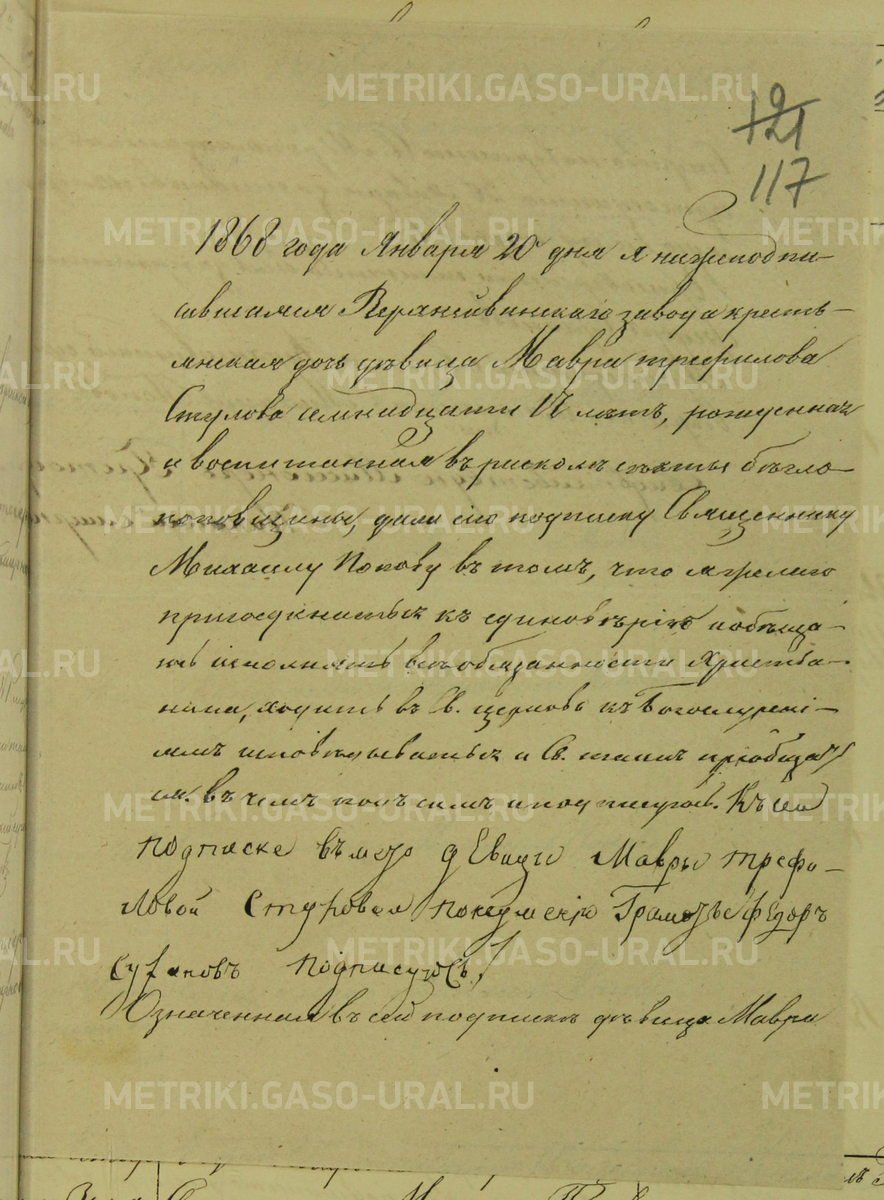 121
117
1868 года Января 20 дня я нижеподпи-
савшаяся Верхнейвинскаго завода кресть-
янская дочь девица Мавра Трефилова
Стулова семнадцати 17 лѣтъ, рожденная
и воспитанная въ расколѣ сѣкты бѣгло-
поповщины, дала сію подписку Священнику
Михаилу Попову въ томъ, что я желаю
присоединиться къ единовѣрію и обѣща-
юсь исполнять всѣ обязанности христіа-
нина, ходить въ Св. церковь къ Богослужені-
ямъ исповѣдываться и Св. таинъ пріобщать
ся. въ чемъ и подписуюсь. Къ сей
подписке вместо девицы Мавры Трефи-
ловой Стуловой Федоръ
подписуюсь
Означенная въ сей подпискѣ дѣвица Мавра
METRIKI.GASO-URAL.RU